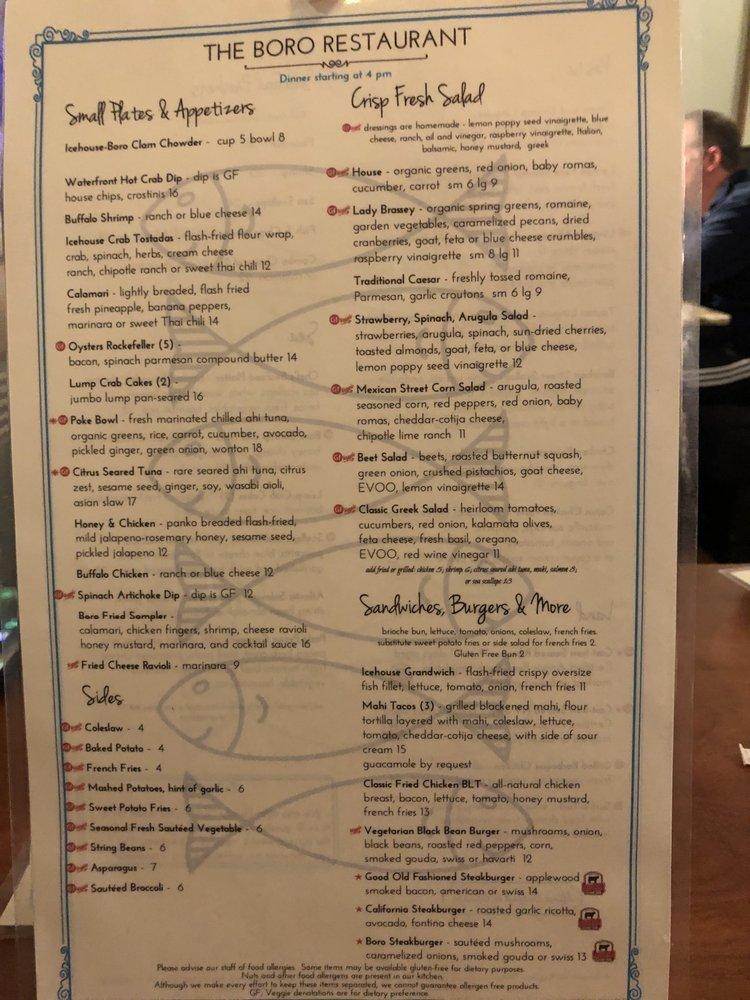 THE BORO RESTAURANT
Dinner starting at 4 pm
Small Plates & Appetizers
Icehouse-Boro Clam Chowder - cup 5 bowl 8
Waterfront Hot Crab Dip - dip is GF
house chips, crostinis 16
Buffalo Shrimp - ranch or blue cheese 14
Icehouse Crab Tostadas - flash-fried flour wrap,
crab, spinach, herbs, cream cheese
ranch, chipotle ranch or sweet thai chili 12
Calamari - lightly breaded, flash fried
fresh pineapple, banana peppers,
marinara or sweet Thai chili 14
Oysters Rockefeller (5) -
bacon, spinach parmesan compound butter 14
Lump Crab Cakes (2) -
jumbo lump pan-seared 16
Poke Bowl - fresh marinated chilled ahi tuna,
organic greens, rice, carrot, cucumber, avocado,
pickled ginger, green onion, wonton 18
Citrus Seared Tuna - rare seared ahi tuna, citrus
zest, sesame seed, ginger, soy, wasabi aioli,
asian slaw 17
Honey & Chicken - panko breaded flash-fried,
mild jalapeno-rosemary honey, sesame seed,
pickled jalapeno 12
Buffalo Chicken - ranch or blue cheese 12
Spinach Artichoke Dip - dip is GF 12
Boro Fried Sampler -
calamari, chicken fingers, shrimp, cheese ravioli
honey mustard, marinara, and cocktail sauce 16
Fried Cheese Ravioli - marinara 9
Sides
Coleslaw - 4
Baked Potato - 4
French Fries - 4
Mashed Potatoes, hint of garlic - 6
Sweet Potato Fries - 6
Seasonal Fresh Sautéed Vegetable - 6
String Beans - 6
Asparagus - 7
Sautéed Broccoli - 6
Crisp Fresh Salad
dressings are homemade - lemon poppy seed vinaigrette, blue
cheese, ranch, oil and vinegar, raspberry vinaigrette, Italian,
balsamic, honey mustard, greek
House - organic greens, red onion, baby romas,
cucumber, carrot sm 6 lg 9
Lady Brassey - organic spring greens, romaine,
garden vegetables, caramelized pecans, dried
cranberries, goat, feta or blue cheese crumbles,
raspberry vinaigrette sm 8 lg 11
Traditional Caesar - freshly tossed romaine,
Parmesan, garlic croutons sm 6 lg 9
Strawberry, Spinach, Arugula Salad -
strawberries, arugula, spinach, sun-dried cherries,
toasted almonds, goat, feta, or blue cheese,
lemon poppy seed vinaigrette 12
Mexican Street Corn Salad - arugula, roasted
seasoned corn, red peppers, red onion, baby
romas, cheddar-cotija cheese,
chipotle lime ranch 11
Beet Salad - beets, roasted butternut squash,
green onion, crushed pistachios, goat cheese,
EVOO, lemon vinaigrette 14
Classic Greek Salad - heirloom tomatoes,
cucumbers, red onion, kalamata olives,
feta cheese, fresh basil, oregano,
EVOO, red wine vinegar 11
add fried or grilled: chicken 5; shrimp 6; citrus seared ahi tuna, mahi, salmon 8;
or sea scallops 13
Sandwiches, Burgers & More
brioche bun, lettuce, tomato, onions, coleslaw, french fries
substitute sweet potato fries or side salad for french fries 2.
Gluten Free Bun 2
Icehouse Grandwich - flash-fried crispy oversize
fish fillet, lettuce, tomato, onion, french fries 11
Mahi Tacos (3) - grilled blackened mahi, flour
tortilla layered with mahi, coleslaw, lettuce,
tomato, cheddar-cotija cheese, with side of sour
cream 15
guacamole by request
Classic Fried Chicken BLT - all-natural chicken
breast, bacon, lettuce, tomato, honey mustard,
french fries 13
Vegetarian Black Bean Burger - mushrooms, onion,
black beans, roasted red peppers, corn,
smoked gouda, swiss or havarti 12
Good Old Fashioned Steakburger - applewood
smoked bacon, american or swiss 14
California Steakburger - roasted garlic ricotta,
avocado, fontina cheese 14
Boro Steakburger - sautéed mushrooms,
caramelized onions, smoked gouda or swiss 13
Please advise our staff of food allergies. Some items may be available gluten-free for dietary purposes.
Nuts and other food allergens are present in our kitchen.
Although we make every effort to keep these items separated, we cannot guarantee allergen free products.
GF, Veggie denotations are for dietary preference.